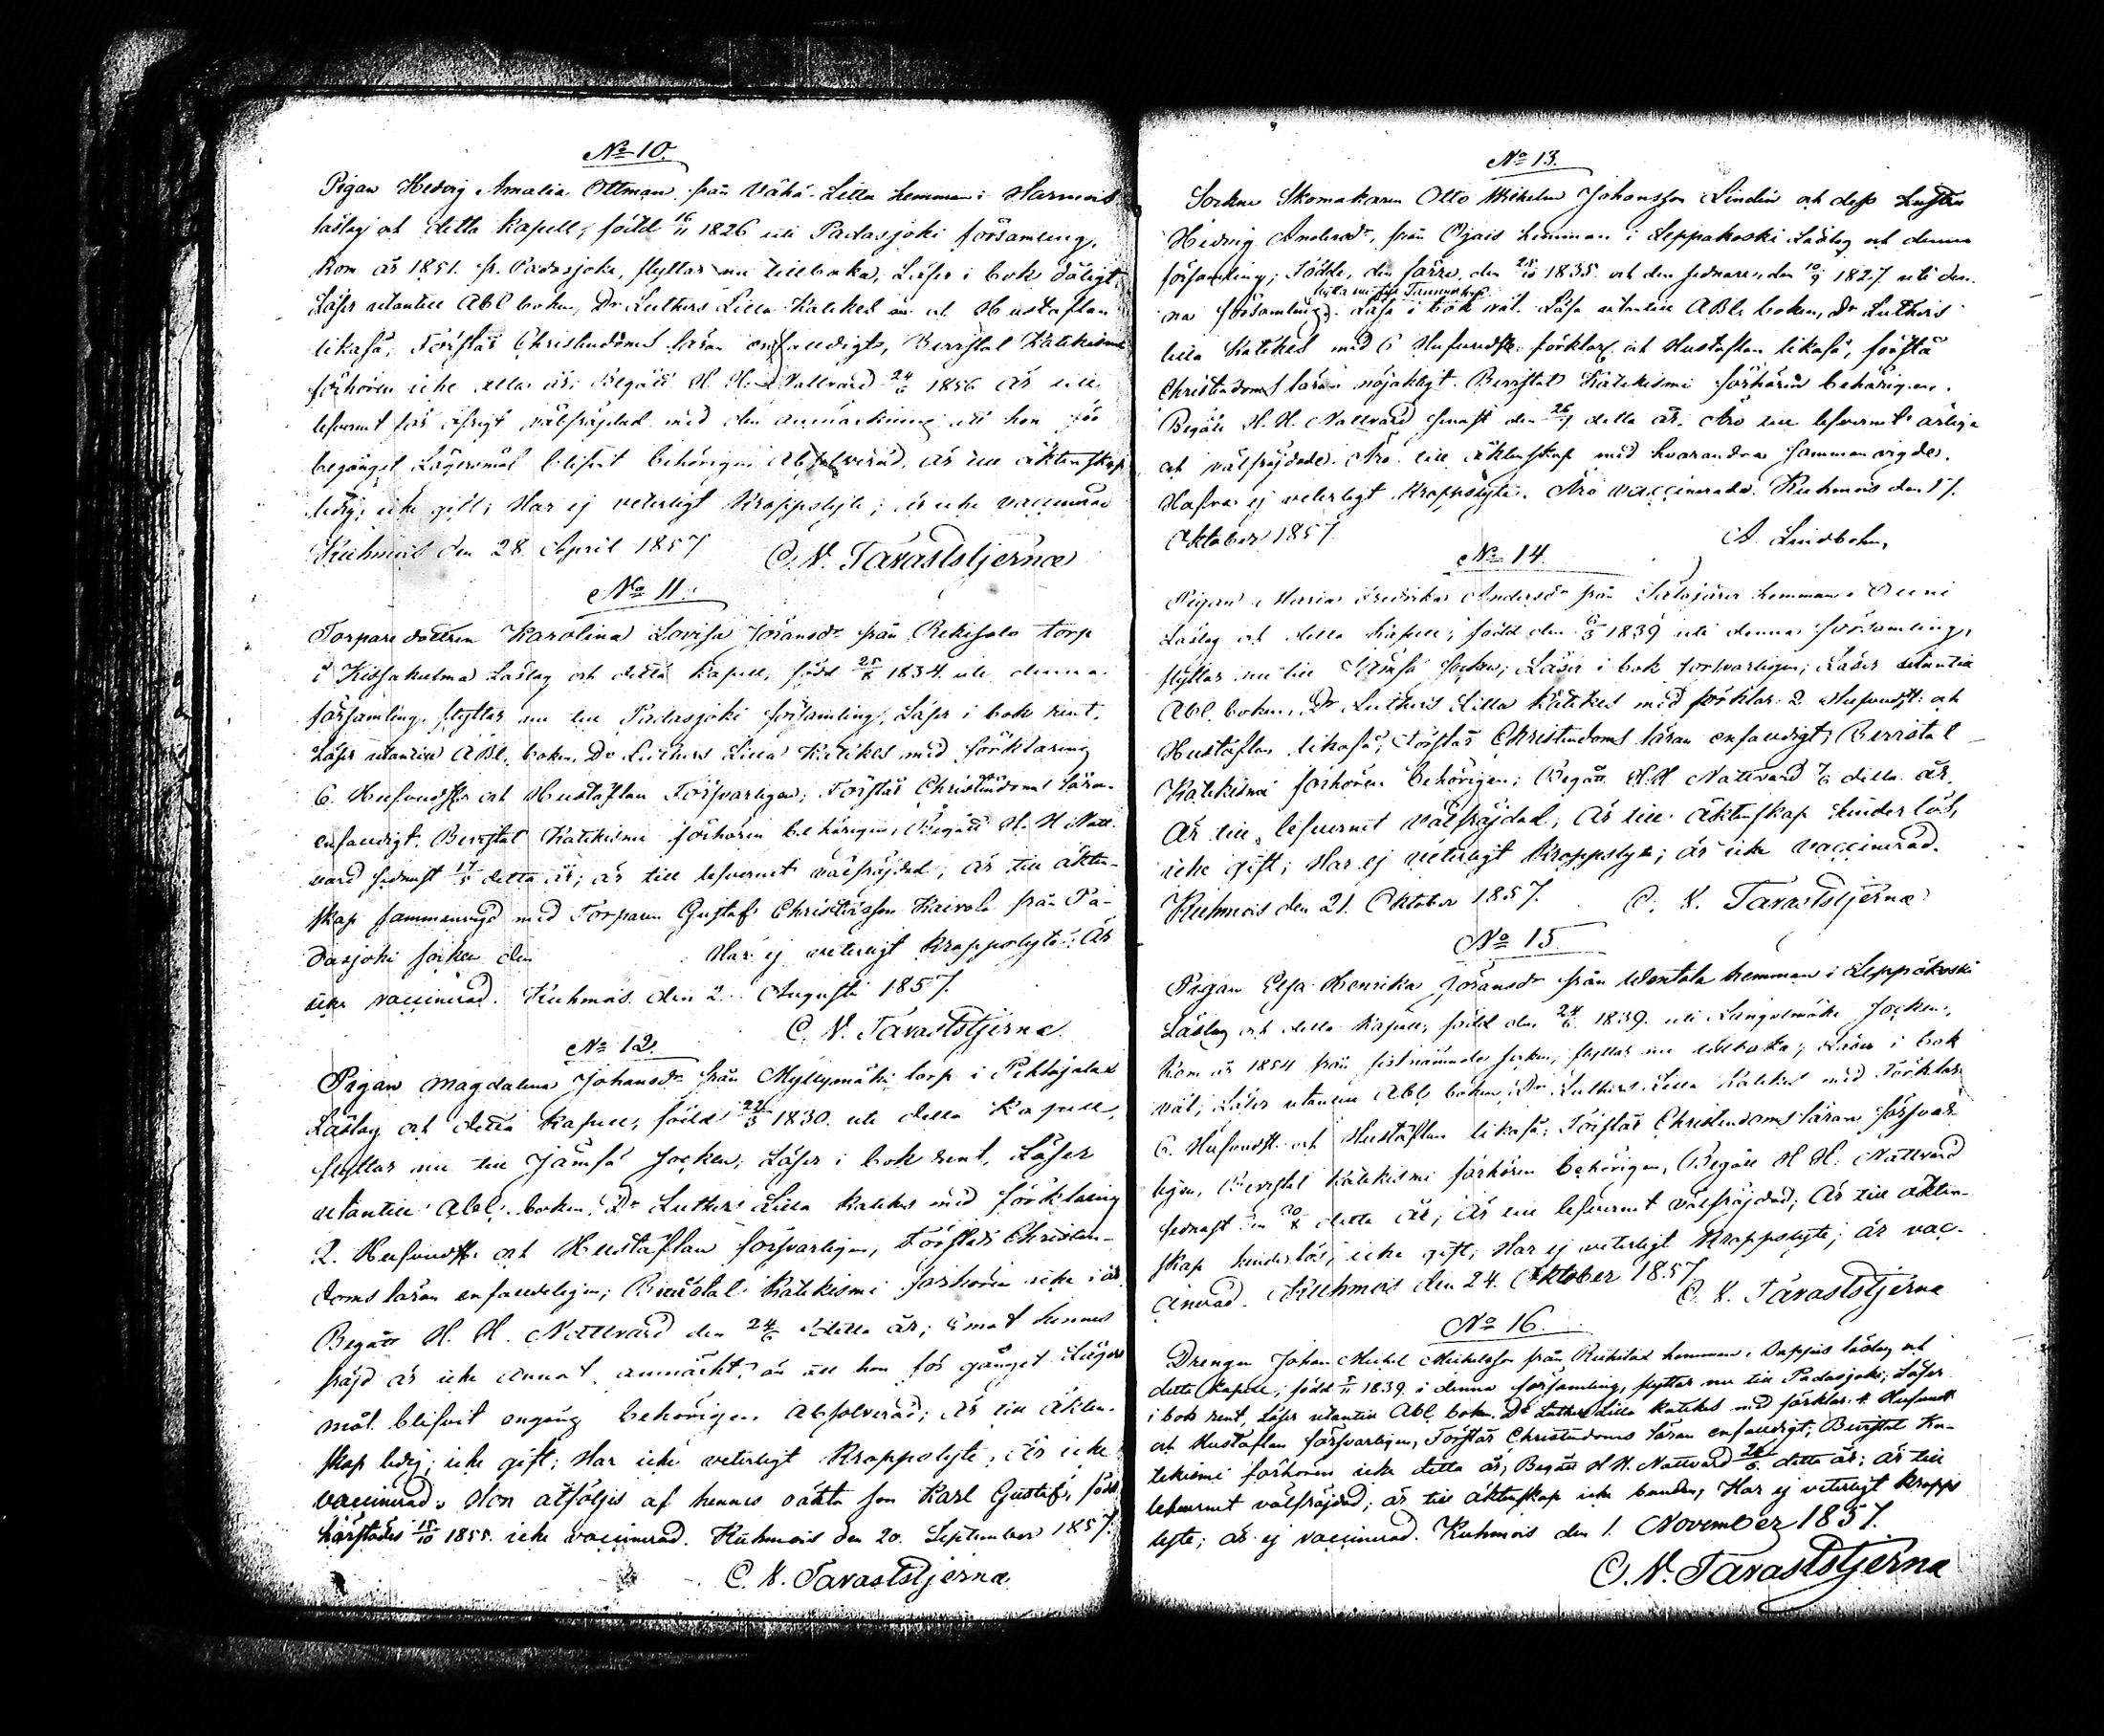 No 10.
Pigan Hedvig Amalia Ottman från Vähä-Litta hemman i Harmois
läslag och detta kapell; född 16/11 1826 uti Padasjoki församling.
Kom år 1851. fr. Padasjoki, flyttar nu tillbaka, Läser i bok dåligt,
Läser utantill Abl boken, Dr Luthers Lilla Katekes och Hustaflan
likaså; Förstår Christendoms läran enfaldigt, Bevistat Katekismi
förhören icke detta år; Begått H. H. Nattvard 24/6 1856 Är till
lefvernet för öfrigt välfräjdad med den anmärkning att hon för
begånget Lägersmål blifvit behörigen Absolverad, är till äktenskap
ledig; icke gift; Har ej veterligt kroppslyte; är icke vaccinerad
Kuhmois den 28 April 1857 C. N. Tavaststjerna
No 11.
Torparedottren Karolina Lovisa Göransdr från Rekisalo torp
i Kissakulma Läslag och detta kapell, född 1834. uti denna
församling, flyttar nu till Padasjoki församling; Läser i bok rent,
Läser utantill ABl. boken, Dr Luthers Lilla Katekes med förklaring
6. Hufvudst. och Hustaflan Försvarligen; Förstår Christendoms läran
enfaldigt. Bevistat Katekismi förhören behörigen; Begått H. H Natt-
vard sednast detta år; är till lefvernet välfräjdad; är till äkten-
skap sammanvigd med Torparen Gustaf Christersson Kaivola från Pa-
dasjoki socken den Har ej veterligt kroppslyte; är
icke vaccinerad. Kuhmois den 2. Augusti 1857.
C. N. Tavaststjerna.
No 12.
Pigan Magdalena Johansdr från Myllymäki torp i Pihlajalax
Läslag och detta kapell, född 22/3 1830. uti detta kapell,
flyttar nu till Jämsä socken; Läser i bok rent, Läser
utantill Abl. boken, Dr Luthers Lilla katekes med förklaring
2. Hufvudst. och Hustaflan försvarligen, Förstår Christen-
doms läran enfaldeligen; Bevistat Katekismi förhören icke i år
Begått H. H. Nattvard den 24/6 detta år; Emot hennes
fräjd är icke annat anmärkt, än att hon för gånget Läger
mål blifvit engång behörigen Absolverad; är till äkten-
skap ledig; icke gift; Har icke veterligt kroppslyte, är icke
vaccinerad. Hon åtföljes af hennes oäkta son Karl Gustaf, född
härstädes 15/10 1855. icke vaccinerad. Kuhmois den 20. September 1857.
C. N. Tavaststjerna
No 13.
Socken Skomakaren Otto Wilhelm Johansson Lindén och dess hustru
Hedvig Andersdr, från Ojais hemman i Leppäkoski Läslag och denna
församling; Födde, den förre, den 25/10 1835. och den sednare, den 10/9 1827 uti den-
flytta nu till
na församling. Läsa i bok väl. Läsa utantill ABl. boken, Dr Luthers
lilla Katekes med 6 Hufvudst. förklar. och Hustaflan likaså, förstå
Christendoms läran nöjaktigt. Bevistat Katekismi förhören behörigen.
Begått H. H. Nattvard senast den detta år. Äro till lefvernet ärliga
och välfräjdade. Äro till äktenskap med hvarandra sammanvigde.
Hafva ej veterligt kroppslyte. Äro vaccinerade. Kuhmois den 17.
Oktober 1857. A. Lindbohm,
No 14.
Pigan Maria Fredrika Andersdr från hemman i
Läslag och detta kapell; född den 6/3 1839 uti denna församling,
flyttar nu till Jämsä socken; Läser i bok försvarligen; Läser utantill
Abl. boken, Dr Luthers Lilla Katekes med förklar. 2. Hufvudst. och
Hustaflan likaså; Förstår Christendoms läran enfaldigt; Bevistat
Katekismi förhören behörigen; Begått H. H Nattvard detta år.
Är till lefvernet välfräjdad; Är till äktenskap hinderlös,
icke gift; Har ej veterligt kroppslyte; är icke vaccinerad.
Kuhmois den 21. Oktober 1857. C. N. Tavaststjerna
No 15.
Pigan Elsa Henrika Göransdr från Uotila hemman i Leppäkoski
Läslag och detta kapell; född den 24/6 1839. uti Luhangomäki socken,
Kom år 1854 från sistnämnde socken, flyttar nu tillbaka; Läser i bok
väl; Läser utantill Abl. boken, Dr Luthers Lilla Katekes med Förklar
6. Hufvudst. och Hustaflan likaså; Förstår Christendoms läran försvar-
ligen, Bevistat Katekismi förhören behörigen, Begått H H. Nattvard
sednast den detta år; är till lefvernet välfräjdad; är till äkten-
skap hinderlös, icke gift; Har ej veterligt kroppslyte; är vac-
cinerad. Kuhmois den 24. Oktober 1857
C. N. Tavaststjerna
No 16.
Drengen Johan Michel Michelsson från hemman i Pappis läslag och
detta kapell, född 1839. i denna församling, flyttar nu till Padasjoki; Läser
i bok rent, Läser utantill Abl. boken, Dr Luthers Lilla Katekes med förklar. 4. Hufvudst
och Hustaflan försvarligen, Förstår Christendoms läran enfaldigt; Bevistat Ka-
tekismi förhören icke detta år, Begått H H. Nattvard detta år; är till
lefvernet välfräjdad; är till äktenskap icke bunden, Har ej veterligt kropps
lyte; är ej vaccinerad. Kuhmois den 1. November 1857.
C. N. Tavaststjerna